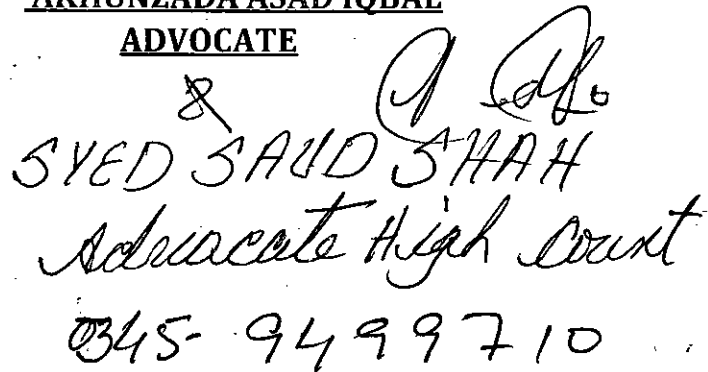 AKHUNZADA ASAD IQBAL
ADVOCATE
&
SYED SAUD SHAH
Advocate High Court
0345-9499710